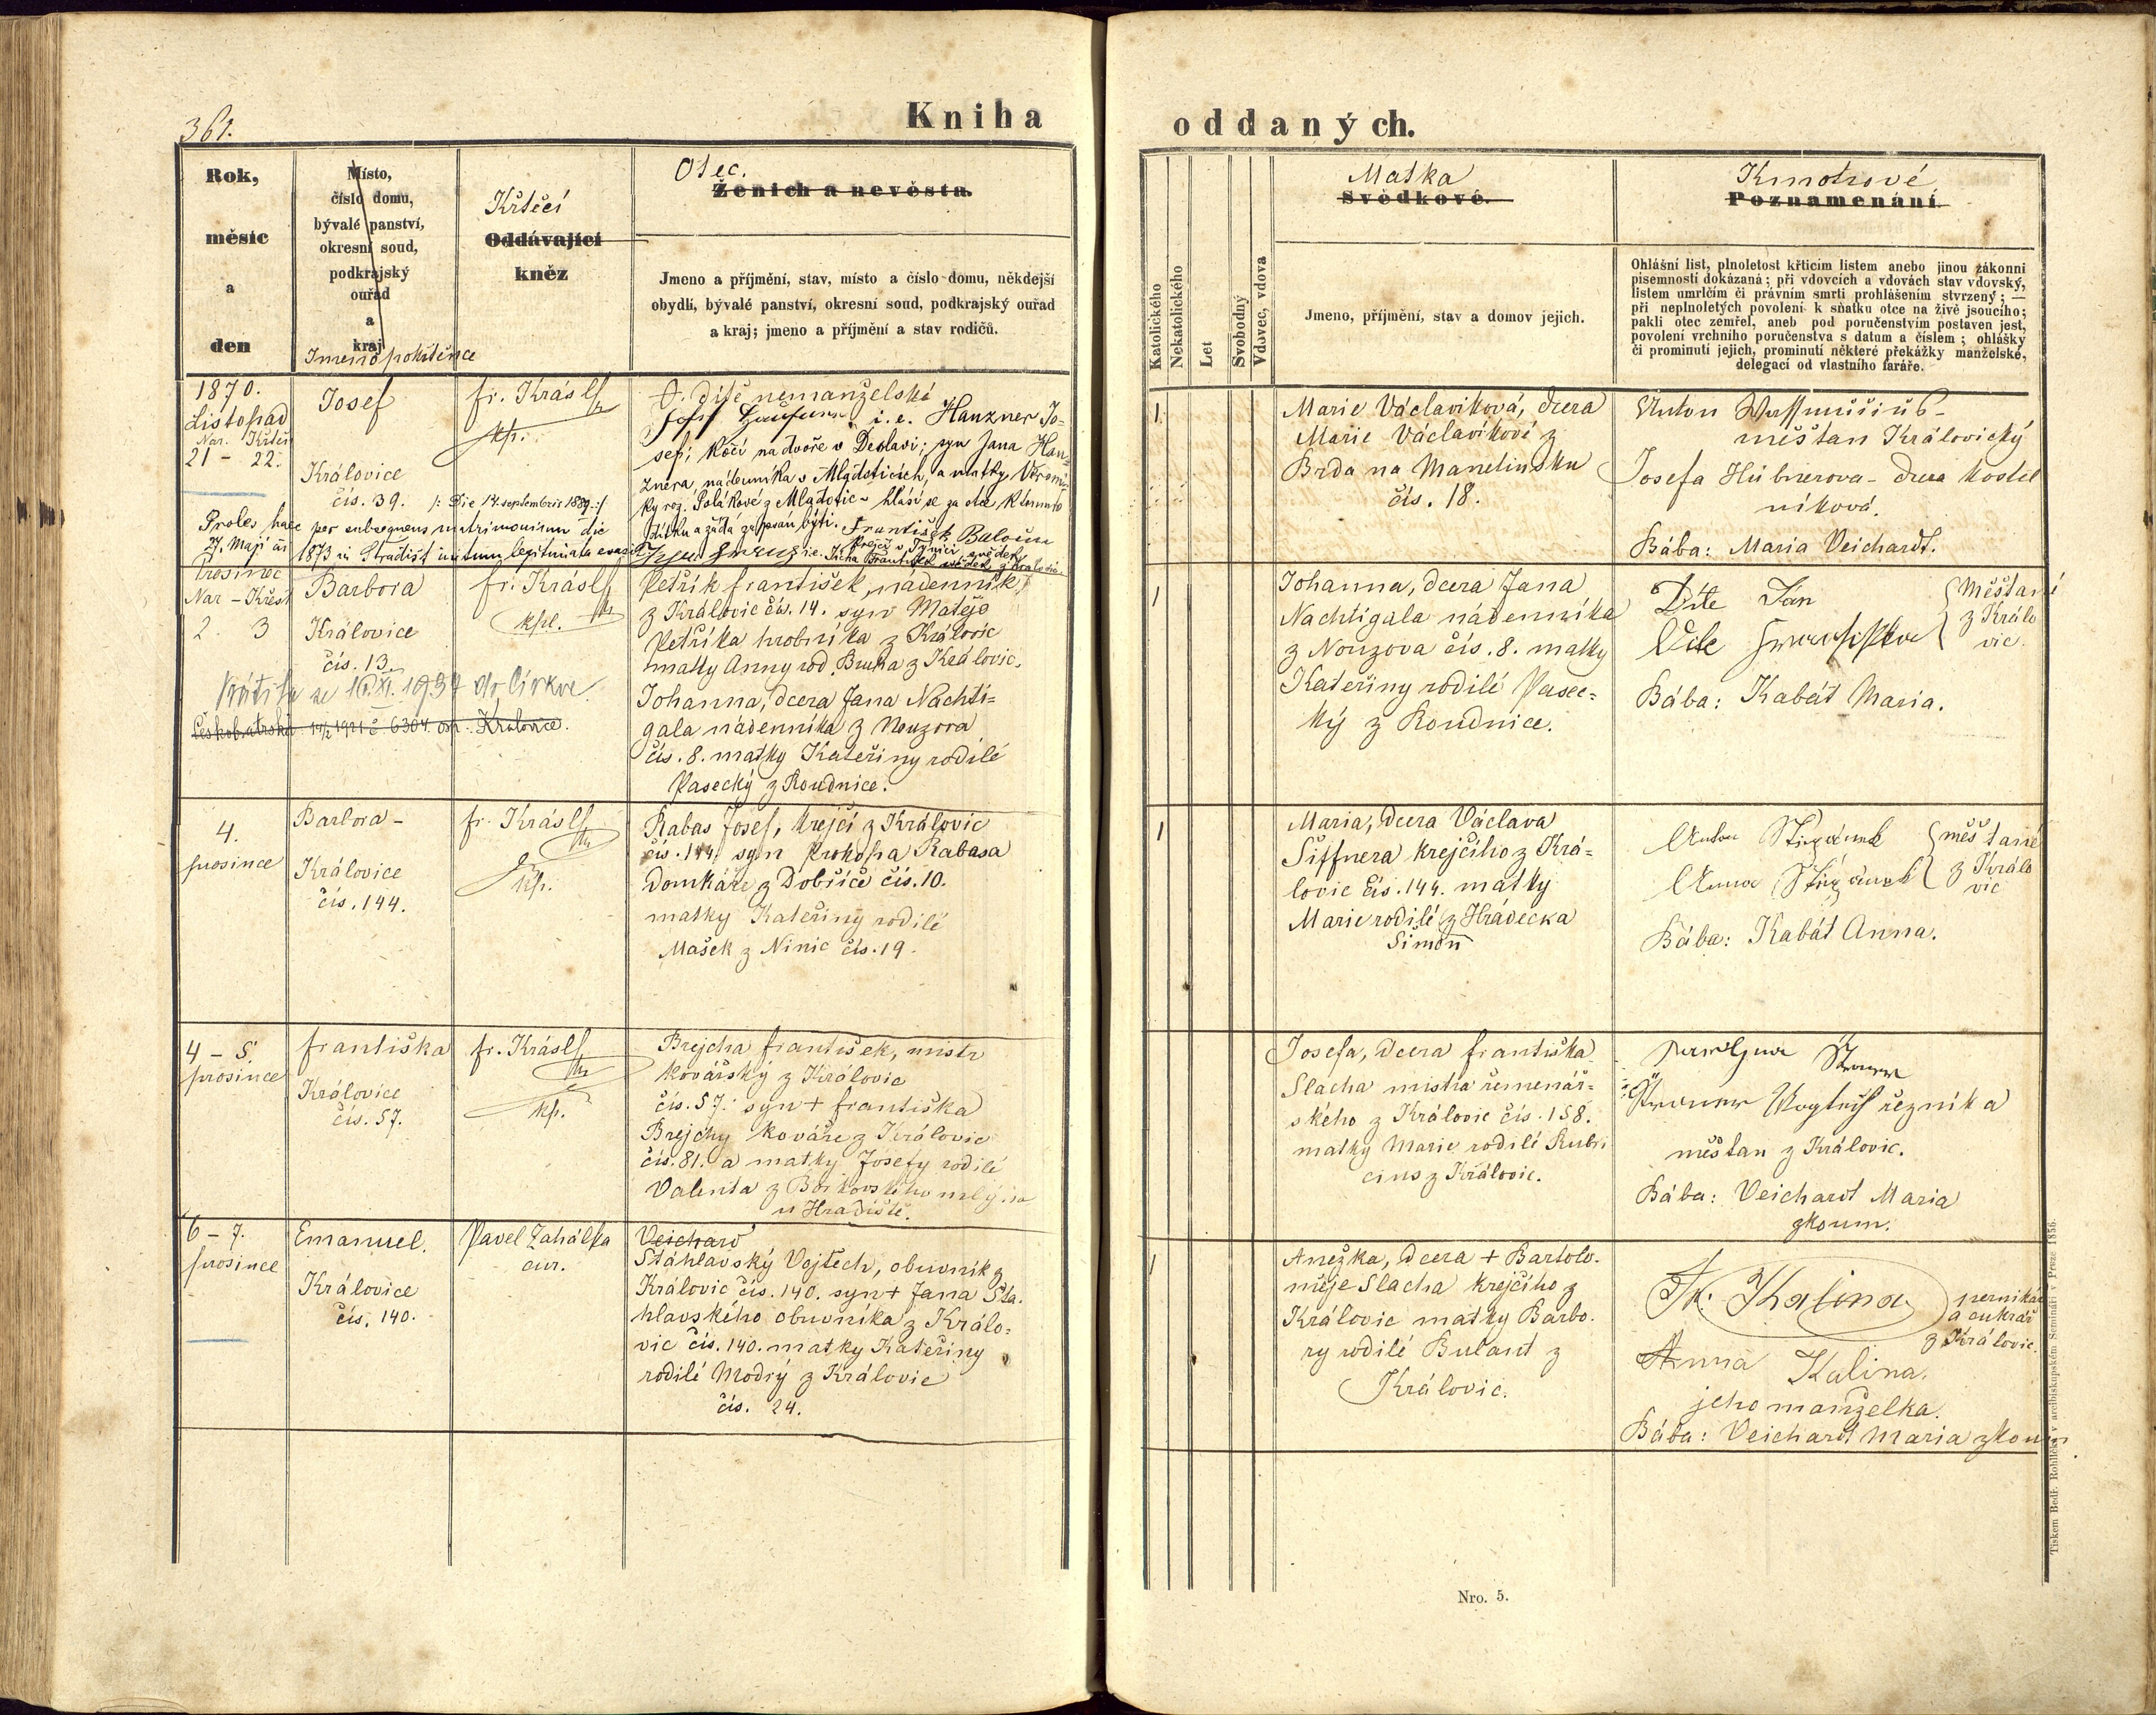 361.
Kniha
oddaných.
Rok,
měsíc
a
den
Místo,
číslo domu,
bývalé panství,
okresní soud,
podkrajský
ouřad
a
kraj
Jmeno pokřtěnce
Křtěcí
Oddávající
kněz
Otec.
Ženich a nevěsta.
Jmeno a příjmění, stav, místo a číslo domu, někdejší
obydlí, bývalé panství, okresní soud, podkrajský ouřad
a kraj; jmeno a příjmění a stav rodičů.
Katolického
Nekatolického
Let
Svobodný
Vdovec, vdova
Matka
Svědkové.
Jmeno, příjmění, stav a domov jejich.
Kmotrové
Poznamenání.
Ohlášní list, plnoletost křticím listem anebo jinou zákonní
písemností dokázaná; při vdovcích a vdovách stav vdovský,
listem umrlčím či právním smrti prohlášením stvrzený; —
při neplnoletých povolení k sňatku otce na živě jsoucího;
pakli otec zemřel, aneb pod poručenstvím postaven jest,
povolení vrchního poručenstva s datum a číslem; ohlášky
či prominutí jejich, prominutí některé překážky manželské,
delegací od vlastního faráře.
1870.
Listopad
Nar. Křtěn
21 – 22.
Josef
Královice
čís. 39.
fr. Krásl
kp.
dítě nemanželské
i. e. Hanzner Jo-
sef; kočí na dvoře v ; syn Jana Han-
znera, nádenníka v Mladoticích, a matky Veroni-
ky roz. Polákové z Mladotic - hlásí se za otce k tomuto
dítku a žádá zapsán býti. František
krejčí v Týnici svědek
i.e. Jícha František svědek z Kralovic
/: Die 14. septembris 1889. :/
Proles haec per subsequens matrimonium die
27. Maji ai 1873 in Hradišt initum legitimata evasit
1
Marie Václavíková, dcera
Marie Václavíkové z
Brda na Manetínsku
čís. 18.
Anton
měšťan Královický
Josefa Hübnerova - dcera kostel
níková.
Bába: Maria Veichardt.
Prosinec
Nar – Křest
2. 3
Barbora
Královice
čís. 13.
fr. Krásl
kpl.
Petřík František, nádenník
z Královic čís. 14. syn Matěje
Petříka hrobníka z Královic
matky Anny rod. Bruha z Královic.
Johanna, dcera Jana Nachti-
gala nádenníka z Nouzova
čís. 8. matky Kateřiny rodilé
Pasecký z Roudnice.
Vrátila se 16.XI. 1934 do církve
Českobratrská 14/2 1921 č 6304. Kralovice.
1
Johanna, dcera Jana
Nachtigala nádenníka
z Nouzova čís. 8. matky
Kateřiny rodilé Pasec-
ký z Roudnice.
Díte Jan
Díte
Měšťané
z Králo
vic
Bába: Kabát Maria.
4.
prosince
Barbora –
Královice
čís. 144.
fr. Krásl
kp.
Rabas Josef, krejčí z Královic
čís. 144. syn Prokopa Rabasa
Domkáře z Dobříče čís. 10.
matky Kateřiny rodilé
Mašek z Ninic čís. 19.
1
Maria, dcera Václava
Šiffnera krejčího z Krá-
lovic čís. 144. matky
Marie rodilé z Hrádecka
Šimon
Anton
Anna
měšťané
z Králo
vic
Bába: Kabát Anna.
4 – 5.
prosince
Františka
Královice
čís. 57.
fr. Krásl
kp.
Brejcha František, mistr
kovářský z Královic
čís. 57. syn + Františka
Brejchy kováře z Královic
čís. 81. a matky Josefy rodilé
Valenta z Borkovského mlýna
u Hradiště.
Josefa, dcera Františka
Slacha mistra řemenář-
ského z Královic čís. 158.
matky Marie rodilé Rubri
cius z Královic.
řezníka
měšťan z Královic.
Bába: Veichardt Maria
zkoum.
6 – 7.
prosince
Emanuel.
Královice
čís. 140.
Pavel Zahálka
cur.
Veichard
Stáhlavský Vojtěch, obuvník z
Královic čís. 140. syn + Jana Stá-
hlavského obuvníka z Králo-
vic čís. 140. matky Kateřiny
rodilé Modrý z Královic
čís. 24.
1
Anežka, dcera + Bartolo-
měje Slacha krejčího z
Královic matky Barbo-
ry rodilé Bulant z
Královic.
Fr. Kalina
perníkář
a cukrář
z Královic.
Anna Kalina.
jeho manželka.
Bába: Veichardt Maria zkoum.
Nro. 5.
Tiskem Bedř. Rohlíčka v arcibiskupském Semináři v Praze 1856.